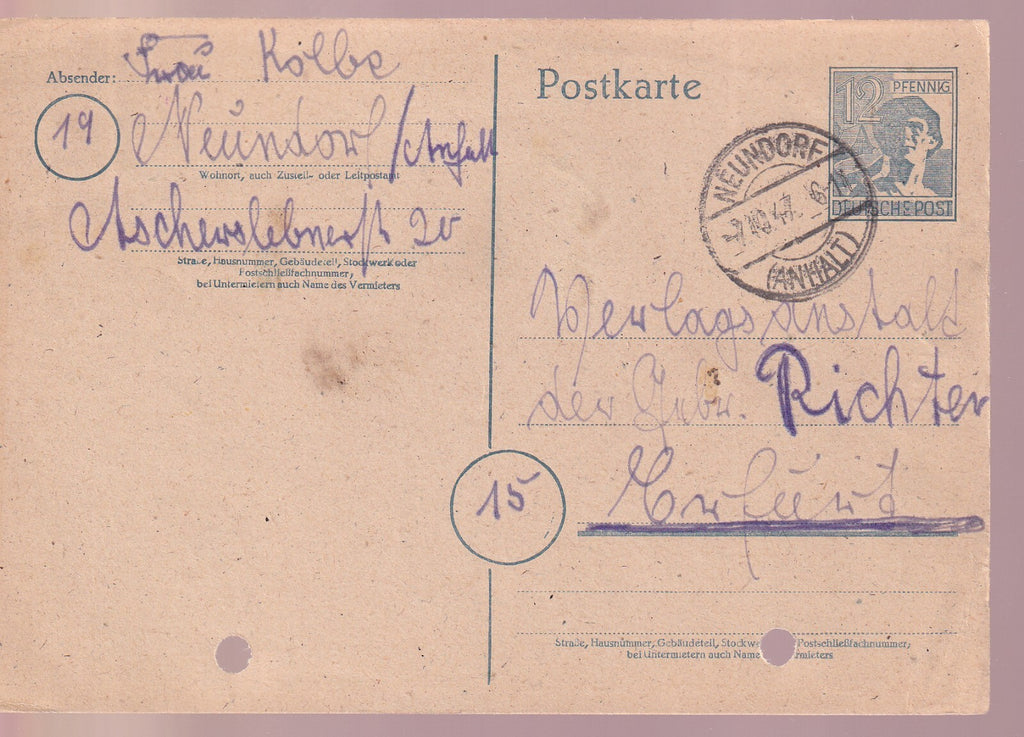 Absender: Frau Kolbe
19
Neundorf / Anhalt
Wohnort, auch Zustell- oder Leitpostamt
Ascherslebnerstr 20
Straße, Hausnummer, Gebäudeteil, Stockwerk oder
Postschließfachnummer,
bei Untermietern auch Name des Vermieters
Postkarte
12 PFENNIG
DEUTSCHE POST
NEUNDORF
47
(ANHALT)
Verlagsanstalt
der Gebr. Richter
15
Erfurt
Straße, Hausnummer, Gebäudeteil, Stockwe Postschließfachnummer;
bei Untermietern auch Name rmieters